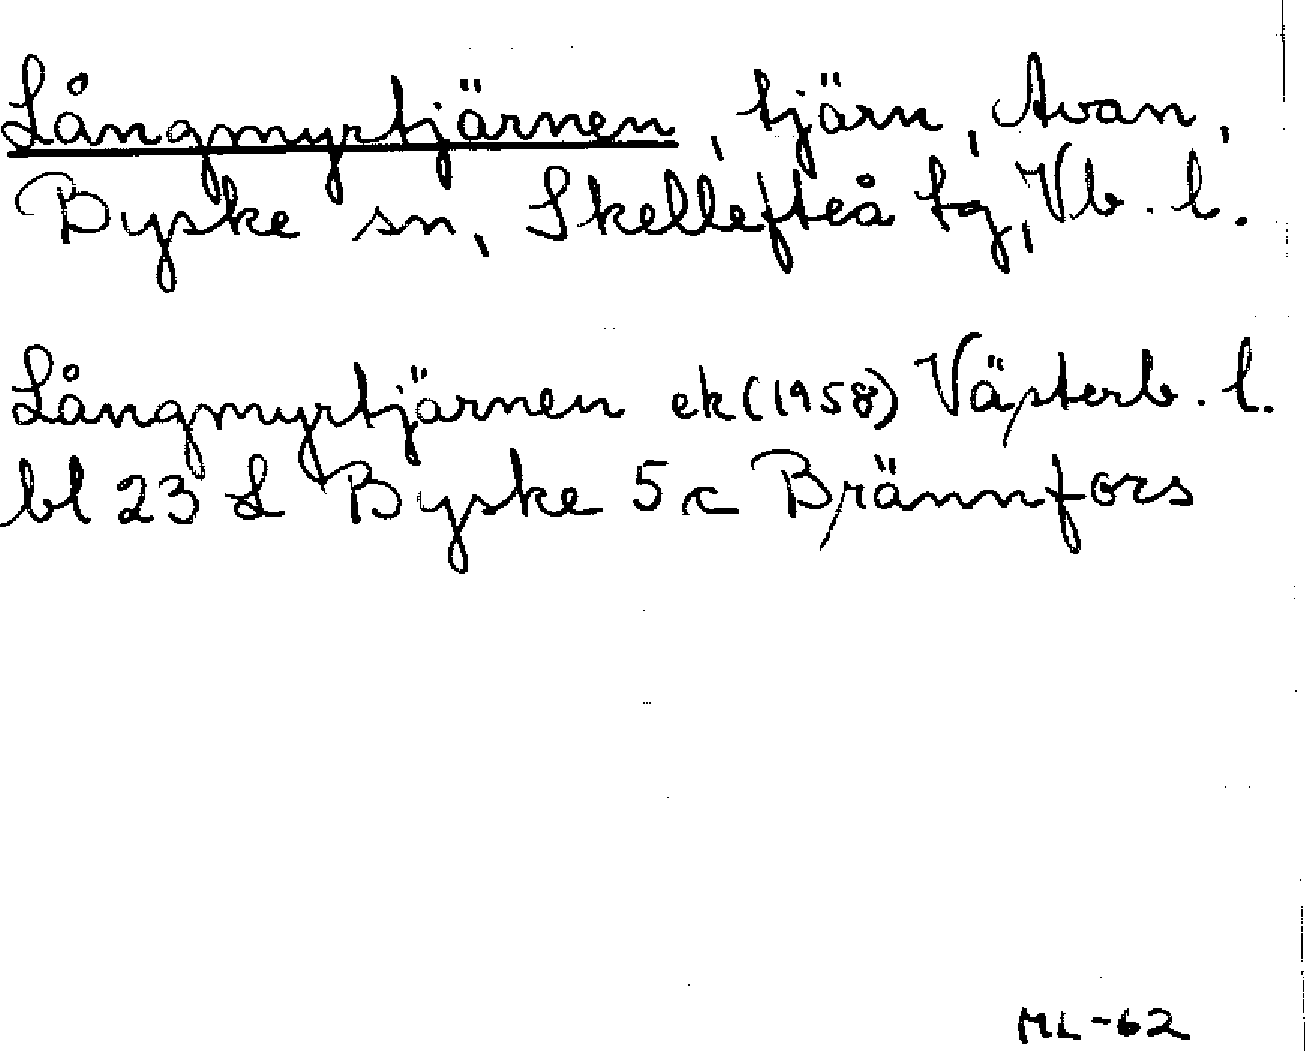 Långmyrtjärnen, tjärn, Avan,
Byske sn, Skellefteå tg, Vb. l.
Långmyrtjärnen ek (1958) Västerb. l.
bl 23 L Byske 5 c Brännfors
ML-62